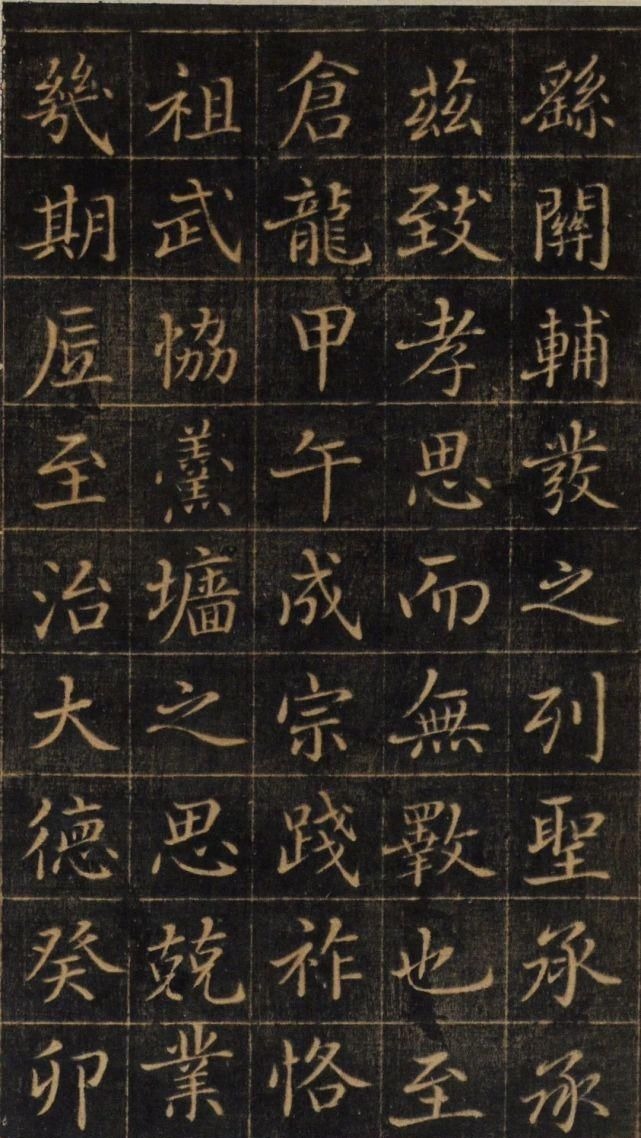 繇關輔發之列聖承承
茲致孝思而無斁也至
倉龍甲午成宗踐祚恪
祖武恊羹墻之思兢業
幾期底至治大德癸卯